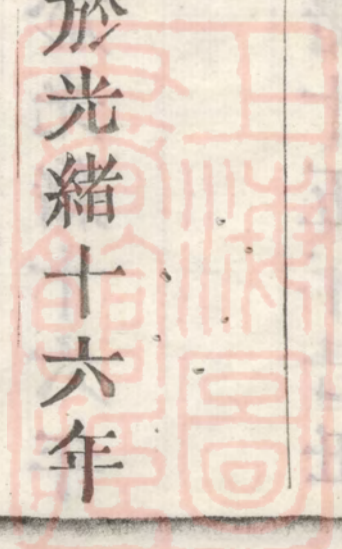 於光緒十六年
上海圖
書館藏